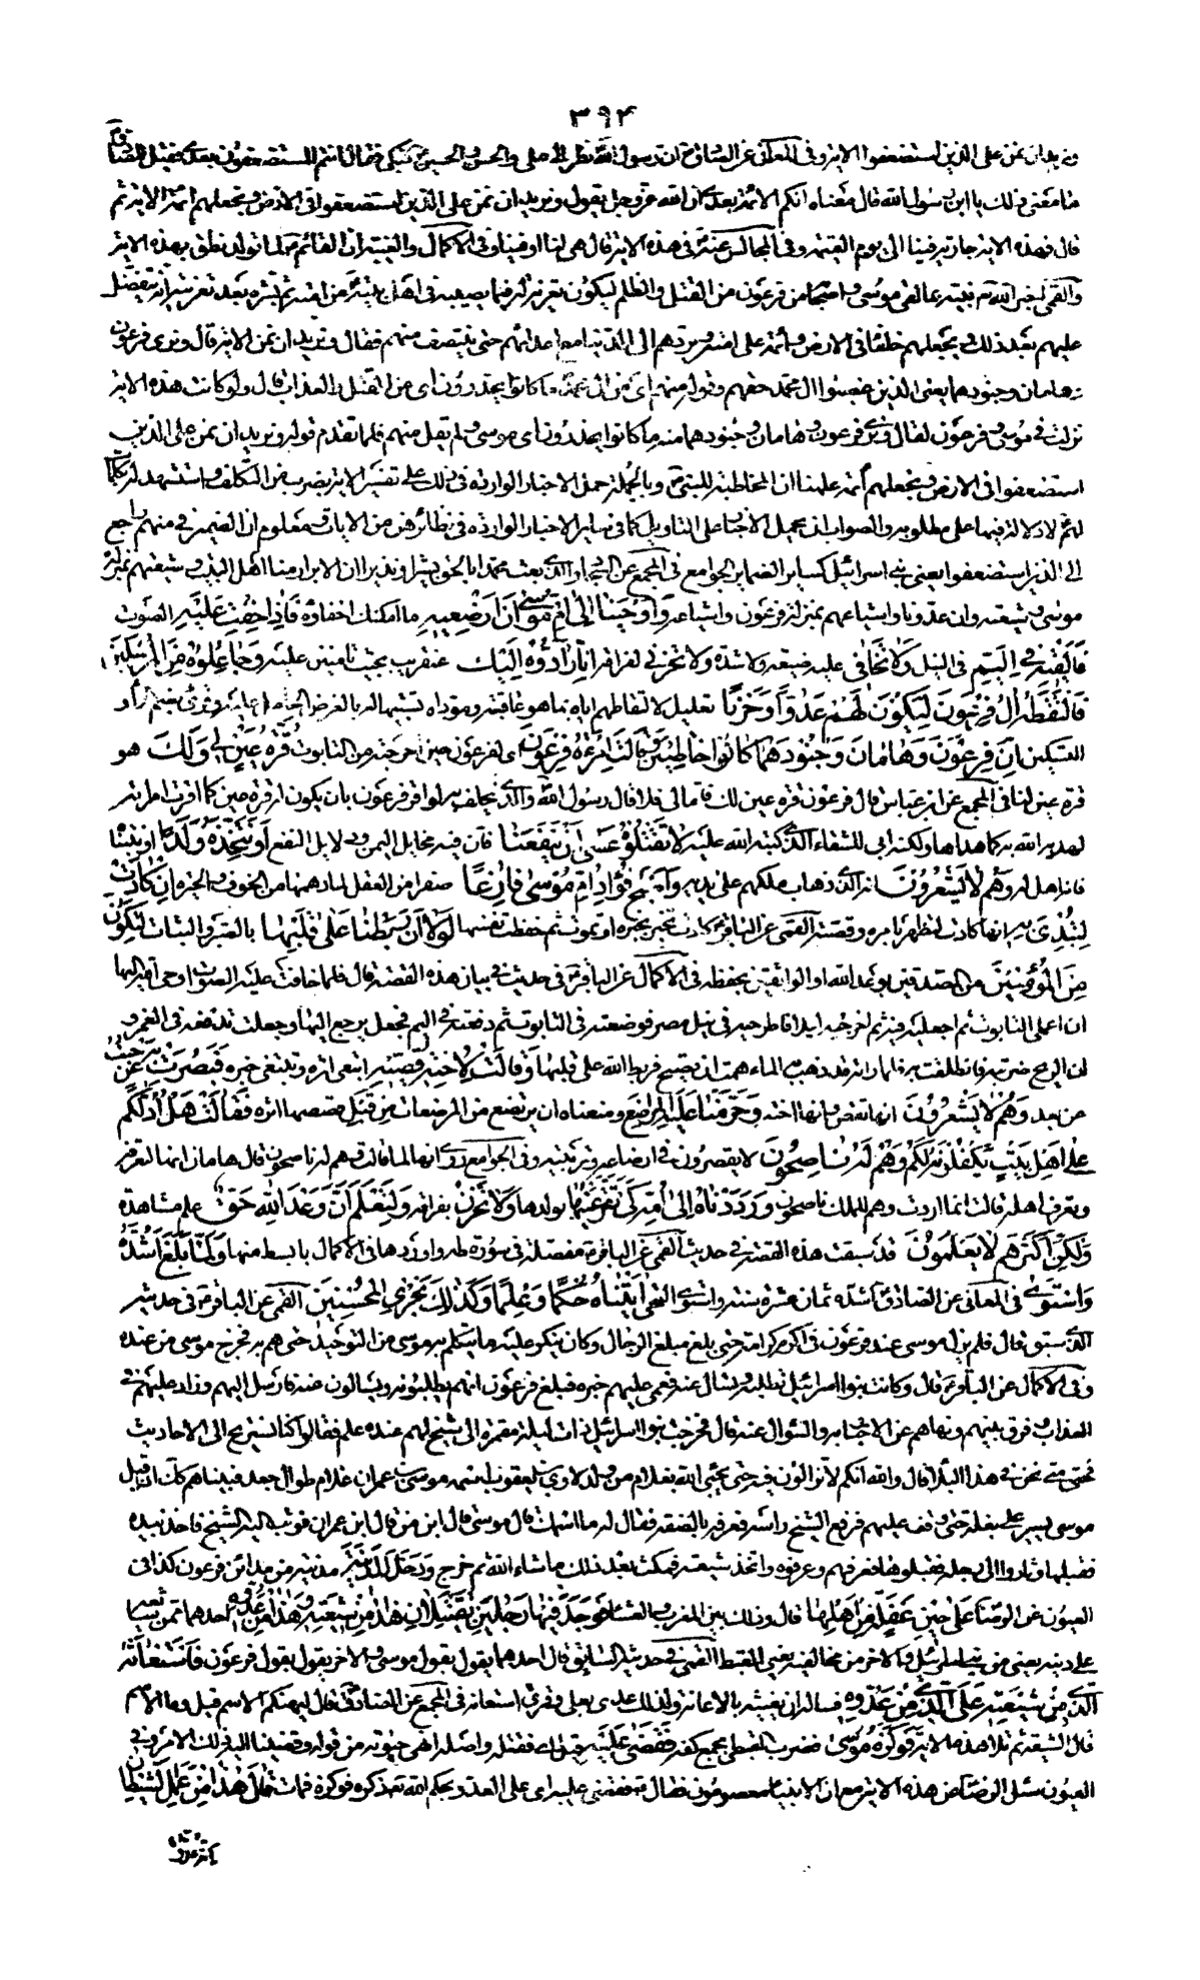 ٣٩٤
ونريد ان نمن على الذين استضعفوا الاية وفي المعاني عن الصادق ع ان رسول الله ص نظر الى علي والحسن والحسين ع فبكى فقال انتم المستضعفون بعدي فقيل للصادق
ما معنى ذلك يا ابن رسول الله قال معناه انكم الائمة بعدي ان الله عز وجل يقول ونريد ان نمن على الذين استضعفوا في الارض ونجعلهم ائمة الاية ثم
قال فهذه الاية جارية فينا الى يوم القيمة وفي المجالس عنه ع في هذه الاية قال هي لنا او فينا وفي الاكمال والغيبة ان القائم ع لما تولد نطق بهذه الاية
والقمي اخبر الله نبيه بما لقي موسى واصحابه من فرعون من القتل والظلم ليكون تعزية له فيما يصيبه في اهل بيته من امته ثم بشره بعد تعزيته انه يتفضل
عليهم بعد ذلك ويجعلهم خلفاء في الارض وائمة على امته ويردهم الى الدنيا مع اعدائهم حتى ينتصف منهم فقال ونريد ان نمن الاية قال ونري فرعون
وهامان وجنودهما يعني الذين غصبوا ال محمد حقهم وقوله منهم اي من ال محمد ما كانوا يحذرون اي من القتل والعذاب قال ولو كانت هذه الاية
نزلت في موسى وفرعون لقال ونري فرعون وهامان وجنودهما منه ما كانوا يحذرون اي موسى ولم يقل منهم فلما تقدم قوله ونريد ان نمن على الذين
استضعفوا في الارض ونجعلهم ائمة علمنا ان المخاطبة للنبي ص وبالجملة حمل الاخبار الواردة في ذلك على تفسير الاية بضرب من التكلف واستشهد له
لا دلالة فيها على مطلوبه والصواب ان يحمل الاخبار على التاويل كما في ساير الاخبار الواردة في نظائرهن من الايات ومعلوم ان الضمير في منهم راجع
الى الذين استضعفوا يعني بني اسرائيل كساير الضماير الجوامع في المجمع عن السجاد ع والذي بعث محمدا بالحق بشيرا ونذيرا ان الابرار منا اهل البيت وشيعتهم بمنزلة
موسى وشيعته وان عدونا واشياعهم بمنزلة فرعون واشياعه واوحينا الى ام موسى ان ارضعيه ما امكنك اخفاؤه فاذا خفت عليه الصوت
فالقيه في اليم في النيل ولا تخافي عليه ضيعة ولا شدة ولا تحزني لفراقه انا رادوه اليك عنقريب بحيث تامنين عليه وجاعلوه من المرسلين
فالتقطه ال فرعون ليكون لهم عدوا وحزنا تعليل لالتقاطهم اياه بما هو عاقبته ومؤداه تشبيها له بالغرض الحامل عليه وقرئ بضم الحاء و
السكون ان فرعون وهامان وجنودهما كانوا خاطئين وقالت امرءة فرعون اي لفرعون حين اخرجته من التابوت قرة عين لي ولك هو
قرة عين لنا في المجمع عن ابن عباس قال فرعون قرة عين لك فاما لي فلا قال رسول الله ص والذي يحلف به لو اقر فرعون بان يكون له قرة عين كما اقرت امراته
لهداه الله به كما هداها ولكنه ابى للشقاء الذي كتبه الله عليه لا تقتلوه عسى ان ينفعنا فان فيه مخايل اليمن ودلايل النفع او نتخذه ولدا او نتبناه
فانه اهل له وهم لا يشعرون انه الذي ذهاب ملكهم على يديه واصبح فؤاد ام موسى فارغا صفرا من العقل لما دهمها من الخوف والحيرة ان كادت
لتبدي به انها كادت لتظهر بامره وقصته القمي عن الباقر ع كادت تخبر بخبره او تموت ثم حفظت نفسها لولا ان ربطنا على قلبها بالصبر والثبات لتكون
من المؤمنين من المصدقين بوعد الله او الواثقين بحفظه في الاكمال عن الباقر ع في حديث في بيان هذه القصة قال فلما خافت عليه الصوت اوحى الله اليها
ان اعملي التابوت ثم اجعليه فيه ثم اخرجيه ليلا فاطرحيه في نيل مصر فوضعته في التابوت ثم دفعته في اليم فجعل يرجع اليها وجعلت تدفعه في الغمر و
ان الريح ضربته فانطلقت به فلما راته قد ذهب به الماء همت ان تصيح فربط الله على قلبها وقالت لاخته قصيه اتبعي اثره وتتبعي خبره فبصرت به عن جنب
عن بعد وهم لا يشعرون انها تقص وانها اخته وحرمنا عليه المراضع ومنعناه ان يرتضع من المرضعات من قبل قصصها اثره فقالت هل ادلكم
على اهل بيت يكفلونه لكم وهم له ناصحون لا يقصرون في ارضاعه وتربيته وفي الجوامع روي انها لما قالت وهم له ناصحون قال هامان انها لتعرفه
وتعرف اهله قالت انما اردت وهم للملك ناصحون ورددناه الى امه كي تقر عينها بولدها ولا تحزن بفراقه ولتعلم ان وعد الله حق علم مشاهدة
ولكن اكثرهم لا يعلمون قد سبقت هذه القصة في حديث القمي عن الباقر ع مفصلة في سورة طه واوردها في الاكمال بابسط منها ولما بلغ اشده
واستوى في المعاني عن الصادق ع اشده ثمان عشرة سنة واستوى التحى اتيناه حكما وعلما وكذلك نجزي المحسنين القمي عن الباقر ع في حديثه
الذي سبق قال فلم يزل موسى عند فرعون في اكرم كرامة حتى بلغ مبلغ الرجال وكان ينكر عليه ما يتكلم به موسى من التوحيد حتى هم به فخرج موسى من عنده
وفي الاكمال عن الباقر ع قال وكانت بنوا اسرائيل تطلبه وتسال عنه فعمي عليهم خبره فبلغ فرعون انهم يطلبونه ويسالون عنه فارسل اليهم وزاد عليهم في
العذاب وفرق بينهم ونهاهم عن الاخبار به والسؤال عنه قال فخرجت بنوا اسرائيل ذات ليلة مقمرة الى شيخ لهم عنده علم فقالوا كنا نستريح الى الاحاديث
فحتى متى نحن في هذا البلاء قال والله انكم لا تزالون فيه حتى يجيء الله بغلام من ولد لاوي بن يعقوب اسمه موسى بن عمران غلام طوال جعد فبينا هم كك اذ اقبل
موسى يسير على بغلة حتى وقف عليهم فرفع الشيخ راسه فعرفه بالصفة فقال له ما اسمك قال موسى قال ابن من قال ابن عمران فوثب اليه الشيخ فاخذ بيده
فقبلها وثاروا الى رجله فقبلوها فعرفهم وعرفوه واتخذ شيعة فمكث بعد ذلك ما شاء الله ثم خرج ودخل المدينة مدينة من مداين فرعون كذا في
العيون عن الرضا ع على حين غفلة من اهلها قال وذلك بين المغرب والعشاء فوجد فيها رجلين يقتتلان هذا من شيعته وهذا من عدوه احدهما ممن شايعه
على دينه يعني من بني اسرائيل والاخر من مخالفيه يعني القبط القمي في حديثه السابق قال احدهما يقول بقول موسى والاخر يقول بقول فرعون فاستغاثه
الذي من شيعته على الذي من عدوه فساله ان يغيثه بالاعانة ولذلك عدي بعلى وقرئ استعانه في المجمع عن الصادق ع قال ليهنكم الاسم قيل وما الاسم
قال الشيعة ثم تلا هذه الاية فوكزه موسى فضرب القبطي بجمع كفه فقضى عليه قيل اي فقتله واصله انهى حيوته من قوله وقضينا اليه ذلك الامر وفي
العيون سئل الرضا ع عن هذه الاية مع ان الانبياء معصومون فقال فقضى عليه اي على العدو بحكم الله تعالى ذكره فوكزه فمات قال هذا من عمل الشيطان